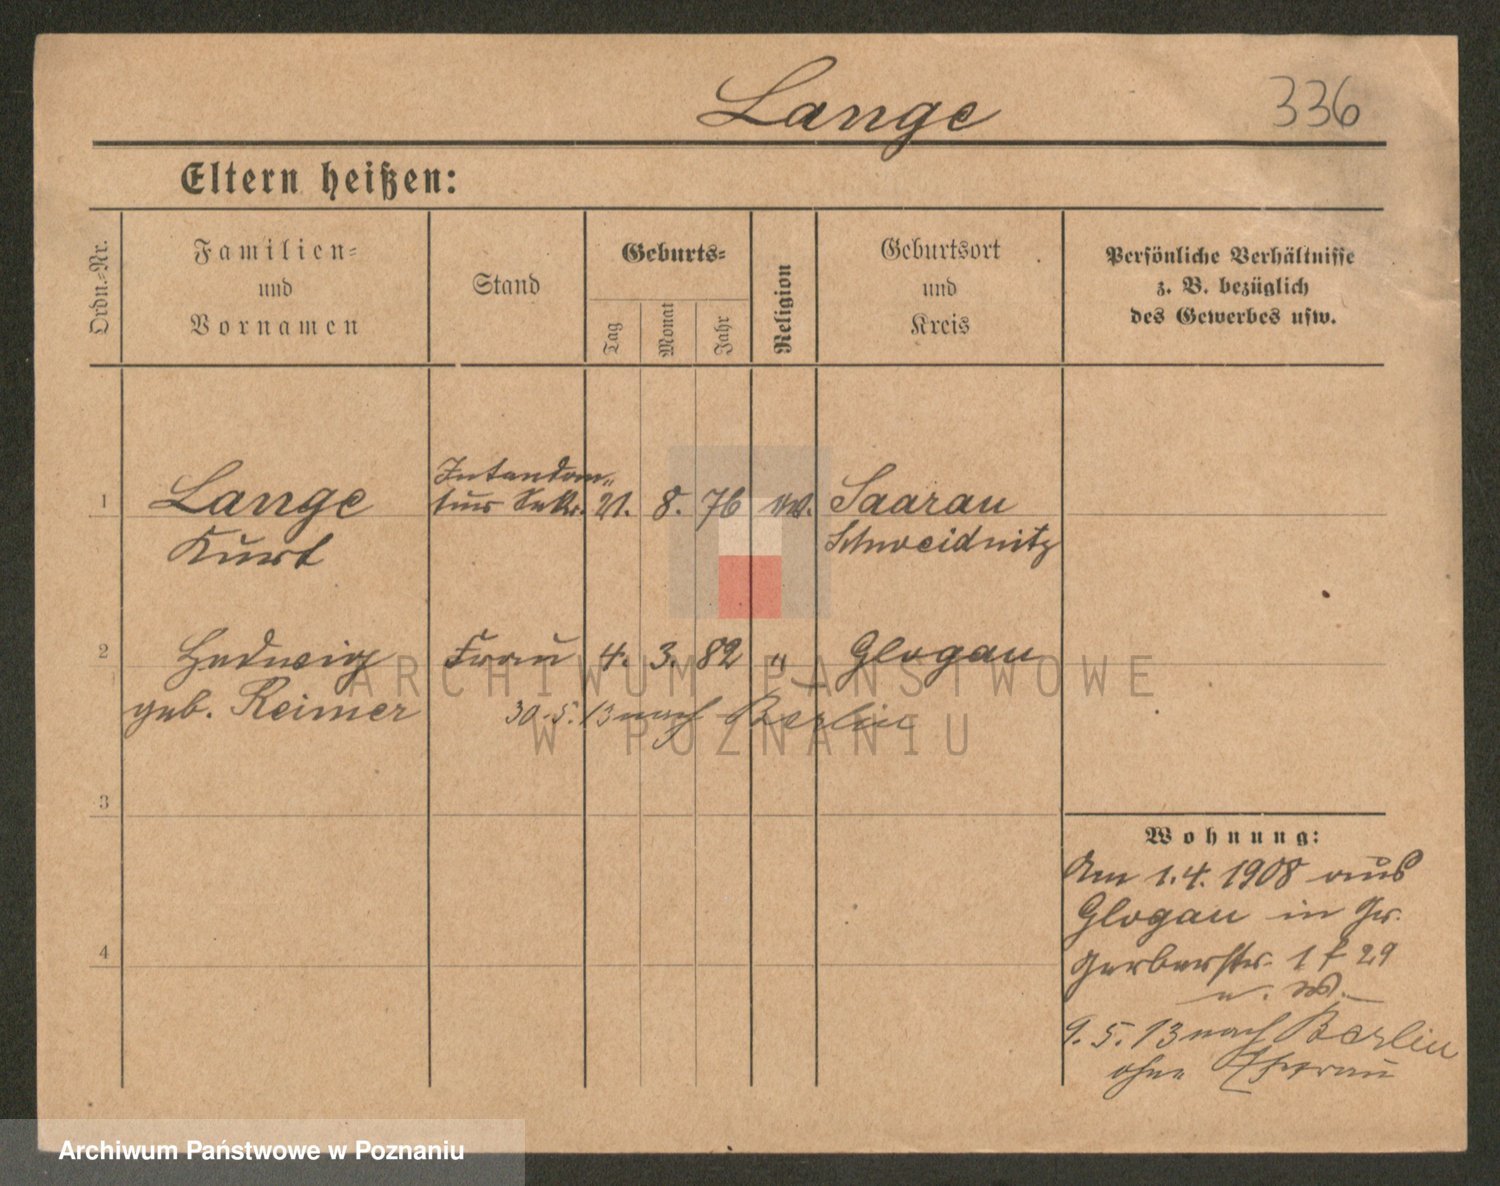 Lange
336
Eltern heißen:
Ordn.-Nr.
Familien-
und
Vornamen
Stand
Geburts-
Tag
Monat
Jahr
Religion
Geburtsort
und
Kreis
Persönliche Verhältnisse
z. B. bezüglich
des Gewerbes usw.
1
Lange
Kurt
Intendan-
tur Sekr.
21. 8. 76
Saarau
Schweidnitz
2
Hedwig
geb. Reimer
Frau
4. 3. 82
"
Glogau
30. 5. 13 nach Berlin
3
4
Wohnung:
Am 1. 4. 1908 aus
Glogau in Gr.
Gerberstr. 29
9. 5. 13 nach Berlin
ohne Ehefrau
ARCHIWUM PAŃSTWOWE
W POZNANIU
Archiwum Państwowe w Poznaniu